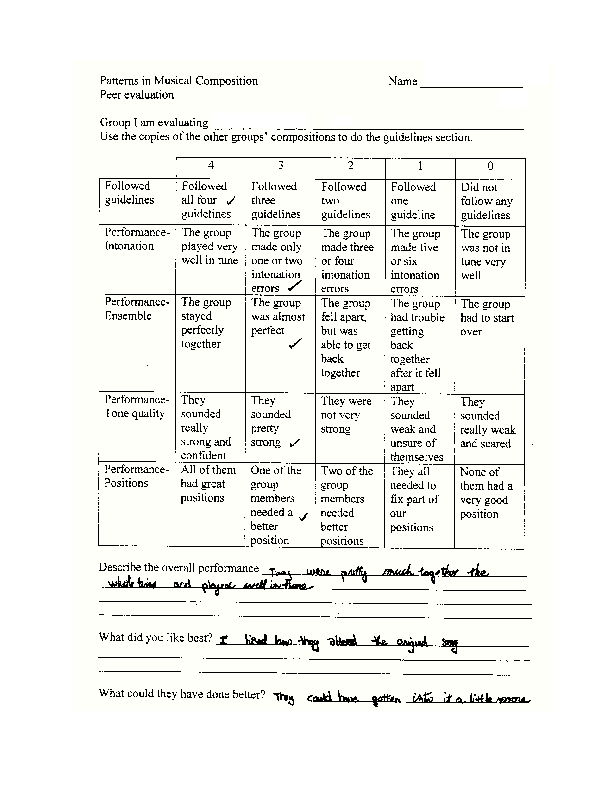 Patterns in Musical Composition Name
Peer evaluation
Group I am evaluating
Use the copies of the other groups' compositions to do the guidelines section.
4 3 2 1 0
Followed guidelines
Followed all four guidelines ✓
Followed three guidelines
Followed two guidelines
Followed one guideline
Did not follow any guidelines
Performance- Intonation
The group played very well in tune
The group made only one or two intonation errors ✓
The group made three or four intonation errors
The group made five or six intonation errors
The group was not in tune very well
Performance- Ensemble
The group stayed perfectly together
The group was almost perfect ✓
The group fell apart, but was able to get back together
The group had trouble getting back together after it fell apart
The group had to start over
Performance- Tone quality
They sounded really strong and confident
They sounded pretty strong ✓
They were not very strong
They sounded weak and unsure of themselves
They sounded really weak and scared
Performance- Positions
All of them had great positions
One of the group members needed a ✓ better position
Two of the group members needed better positions
They all needed to fix part of our positions
None of them had a very good position
Describe the overall performance They were pretty much together the
whole time and played well in tune
What did you like best? I liked how they altered the original song
What could they have done better? They could have gotten into it a little more